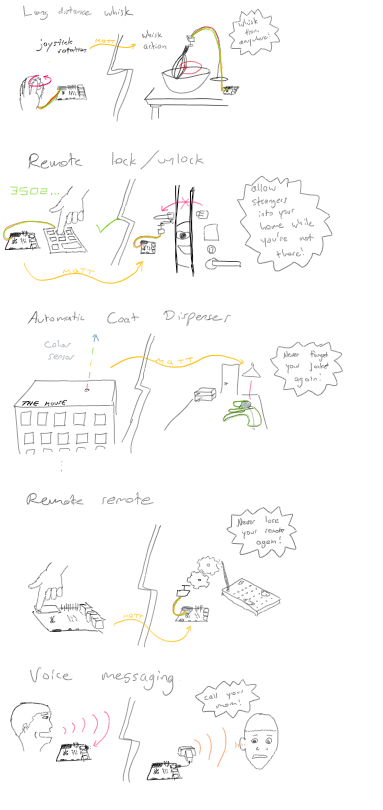 Long distance whisk
joystick
rotation
MQTT
Whisk
action
Whisk
from
anywhere!
Remote lock/unlock
3502...
MQTT
allow
strangers
into your
home while
you're not
there!
Automatic Coat Dispenser
Color
sensor
MQTT
THE HOUSE
Never forget
your jacket
again!
Remote remote
MQTT
Never lose
your remote
again!
Voice messaging
call your
mom!